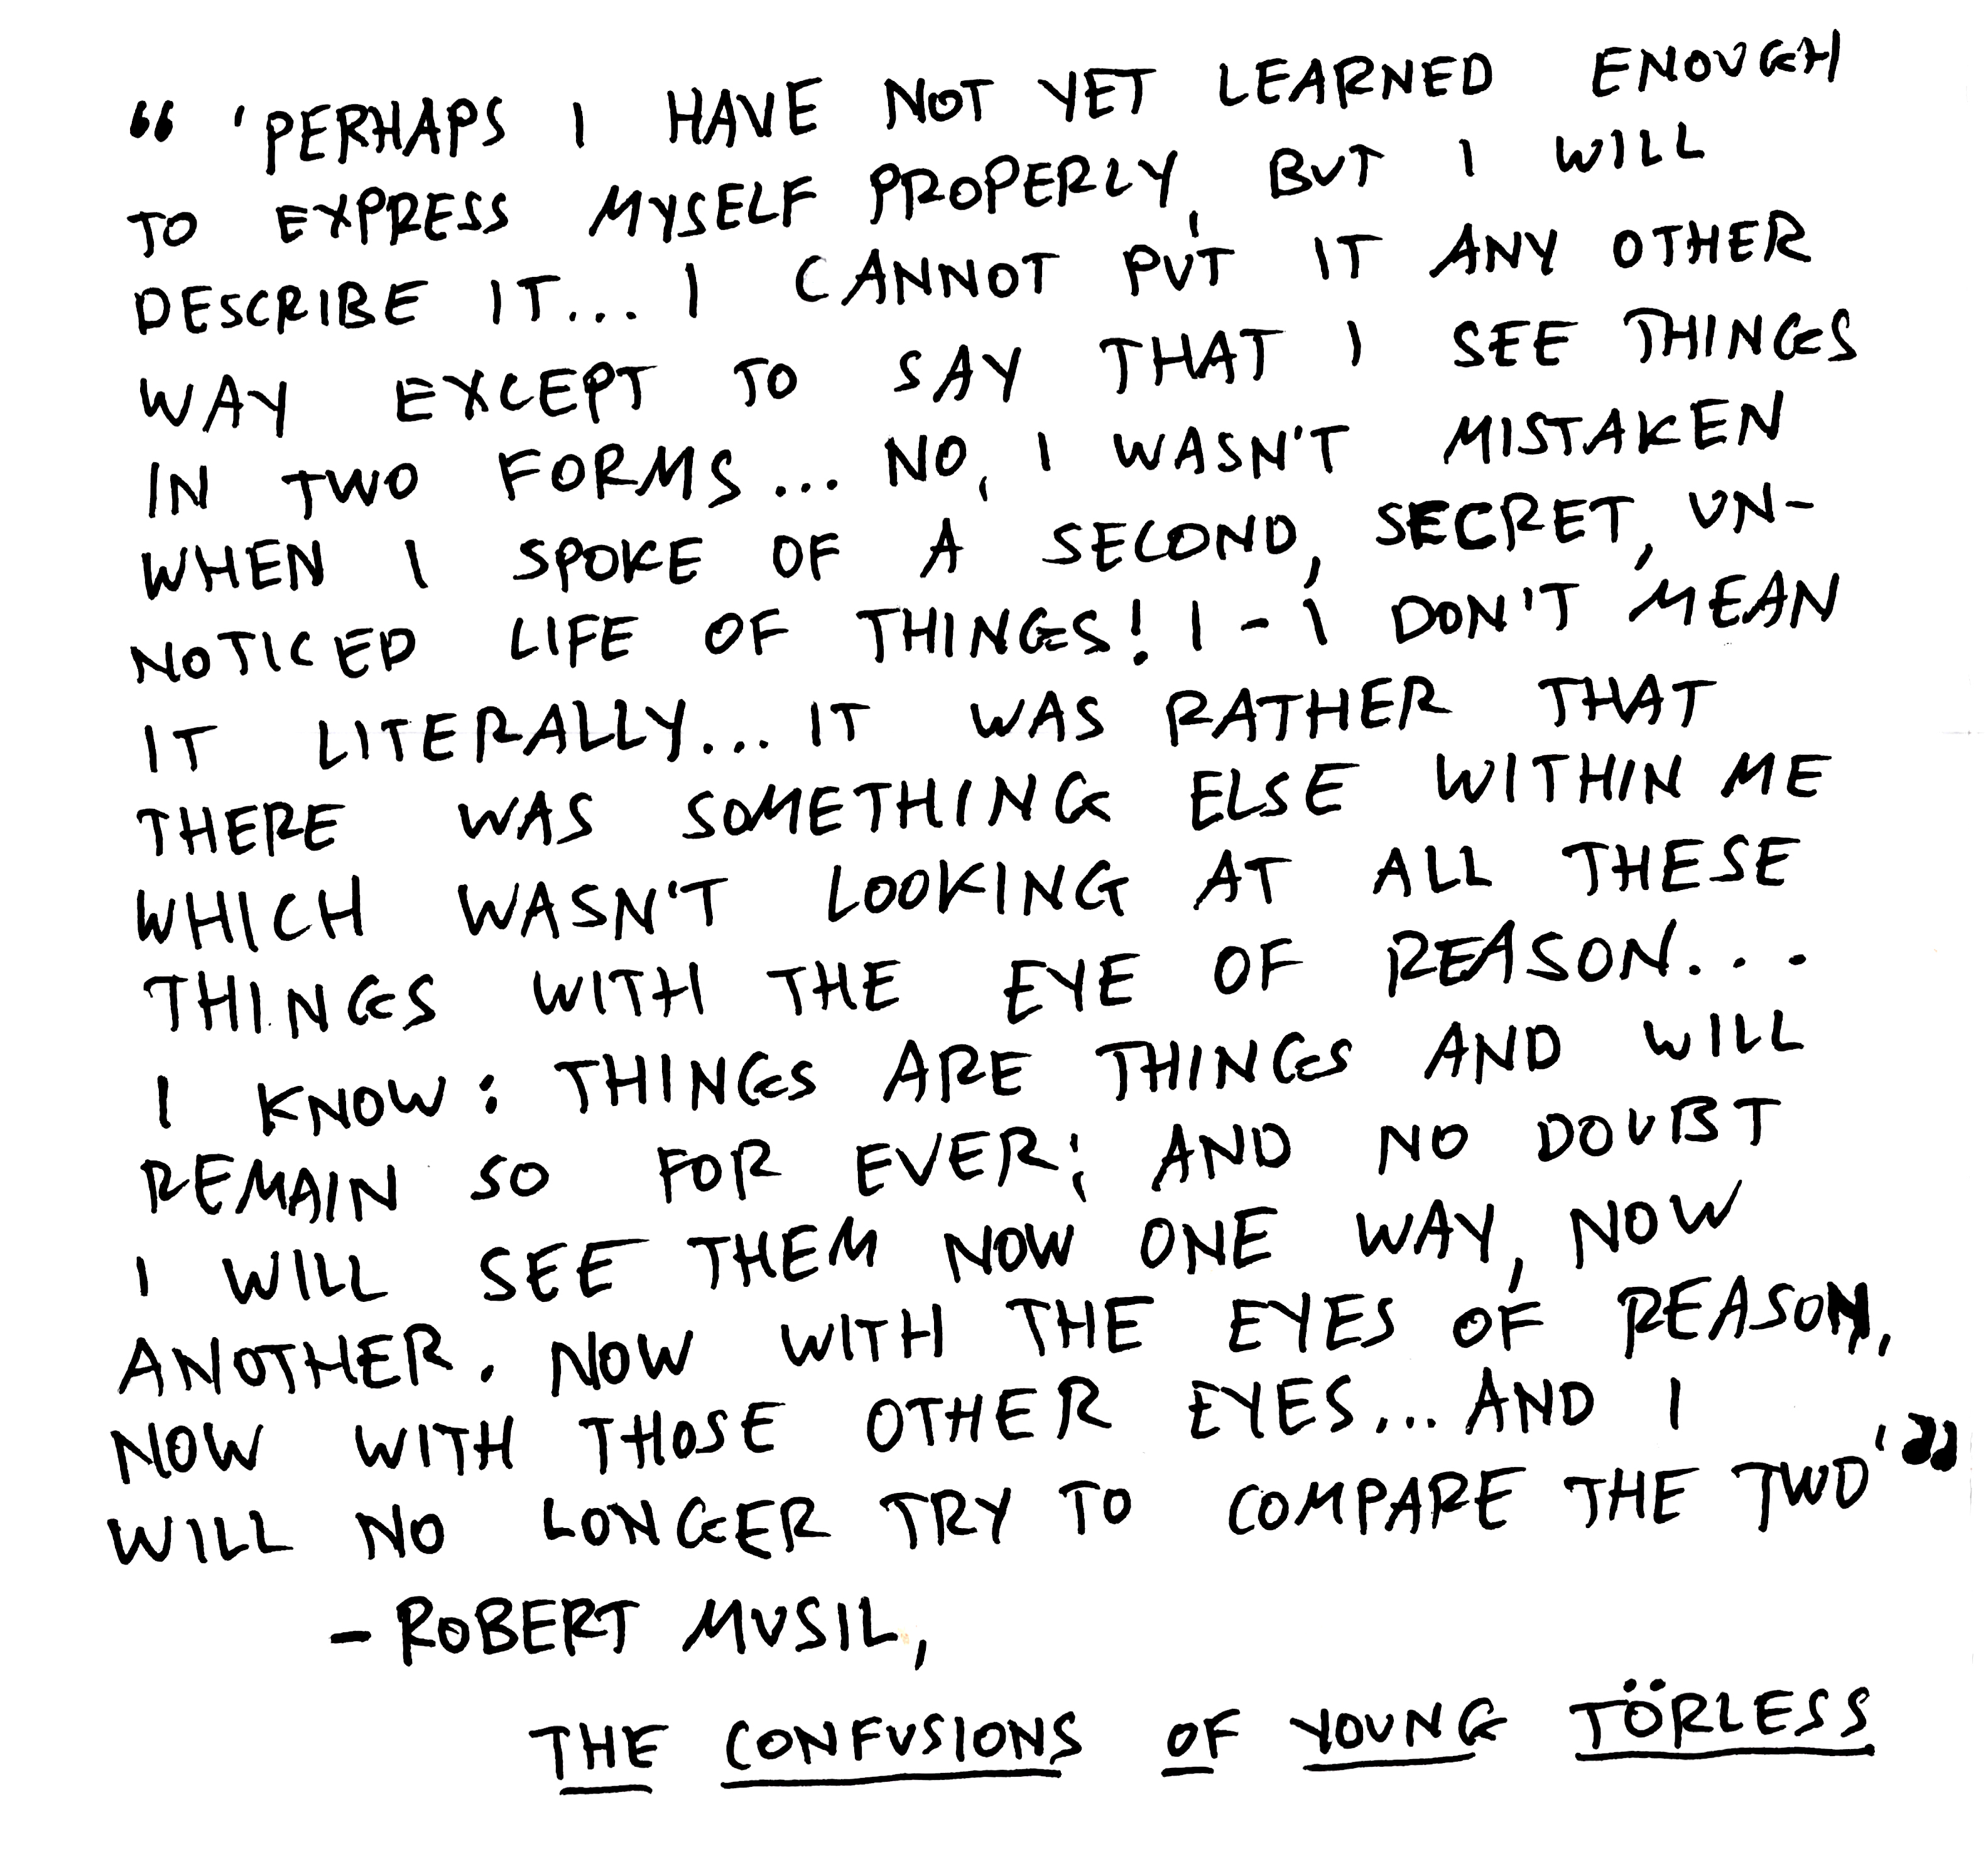 “ ‘PERHAPS I HAVE NOT YET LEARNED ENOUGH
TO EXPRESS MYSELF PROPERLY, BUT I WILL
DESCRIBE IT... I CANNOT PUT IT ANY OTHER
WAY EXCEPT TO SAY THAT I SEE THINGS
IN TWO FORMS... NO, I WASN'T MISTAKEN
WHEN I SPOKE OF A SECOND, SECRET, UN-
NOTICED LIFE OF THINGS! I - I DON'T MEAN
IT LITERALLY... IT WAS RATHER THAT
THERE WAS SOMETHING ELSE WITHIN ME
WHICH WASN'T LOOKING AT ALL THESE
THINGS WITH THE EYE OF REASON...
I KNOW: THINGS ARE THINGS AND WILL
REMAIN SO FOR EVER; AND NO DOUBT
I WILL SEE THEM NOW ONE WAY, NOW
ANOTHER. NOW WITH THE EYES OF REASON,
NOW WITH THOSE OTHER EYES... AND I
WILL NO LONGER TRY TO COMPARE THE TWO’”
- ROBERT MUSIL,
THE CONFUSIONS OF YOUNG TÖRLESS